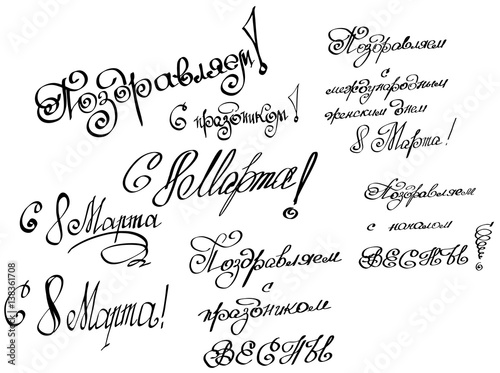 Поздравляем!
С праздником!
С 8 Марта!
С 8 Марта
С 8 Марта!
Поздравляем
с
праздником
ВЕСНЫ
Поздравляем
с
международным
женским днем
8 Марта!
Поздравляем
с началом
ВЕСНЫ!
Adobe Stock | #138361708